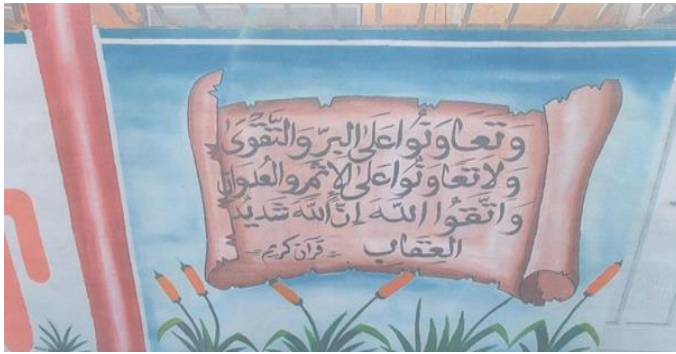 وَتَعَاوَنُوا عَلَى البِرِّ وَالتَّقْوَىٰ
وَلَا تَعَاوَنُوا عَلَى الْإِثْمِ وَالْعُدْوَانِ
وَاتَّقُوا اللَّهَ إِنَّ اللَّهَ شَدِيدُ
العِقَابِ = قرآن كريم =